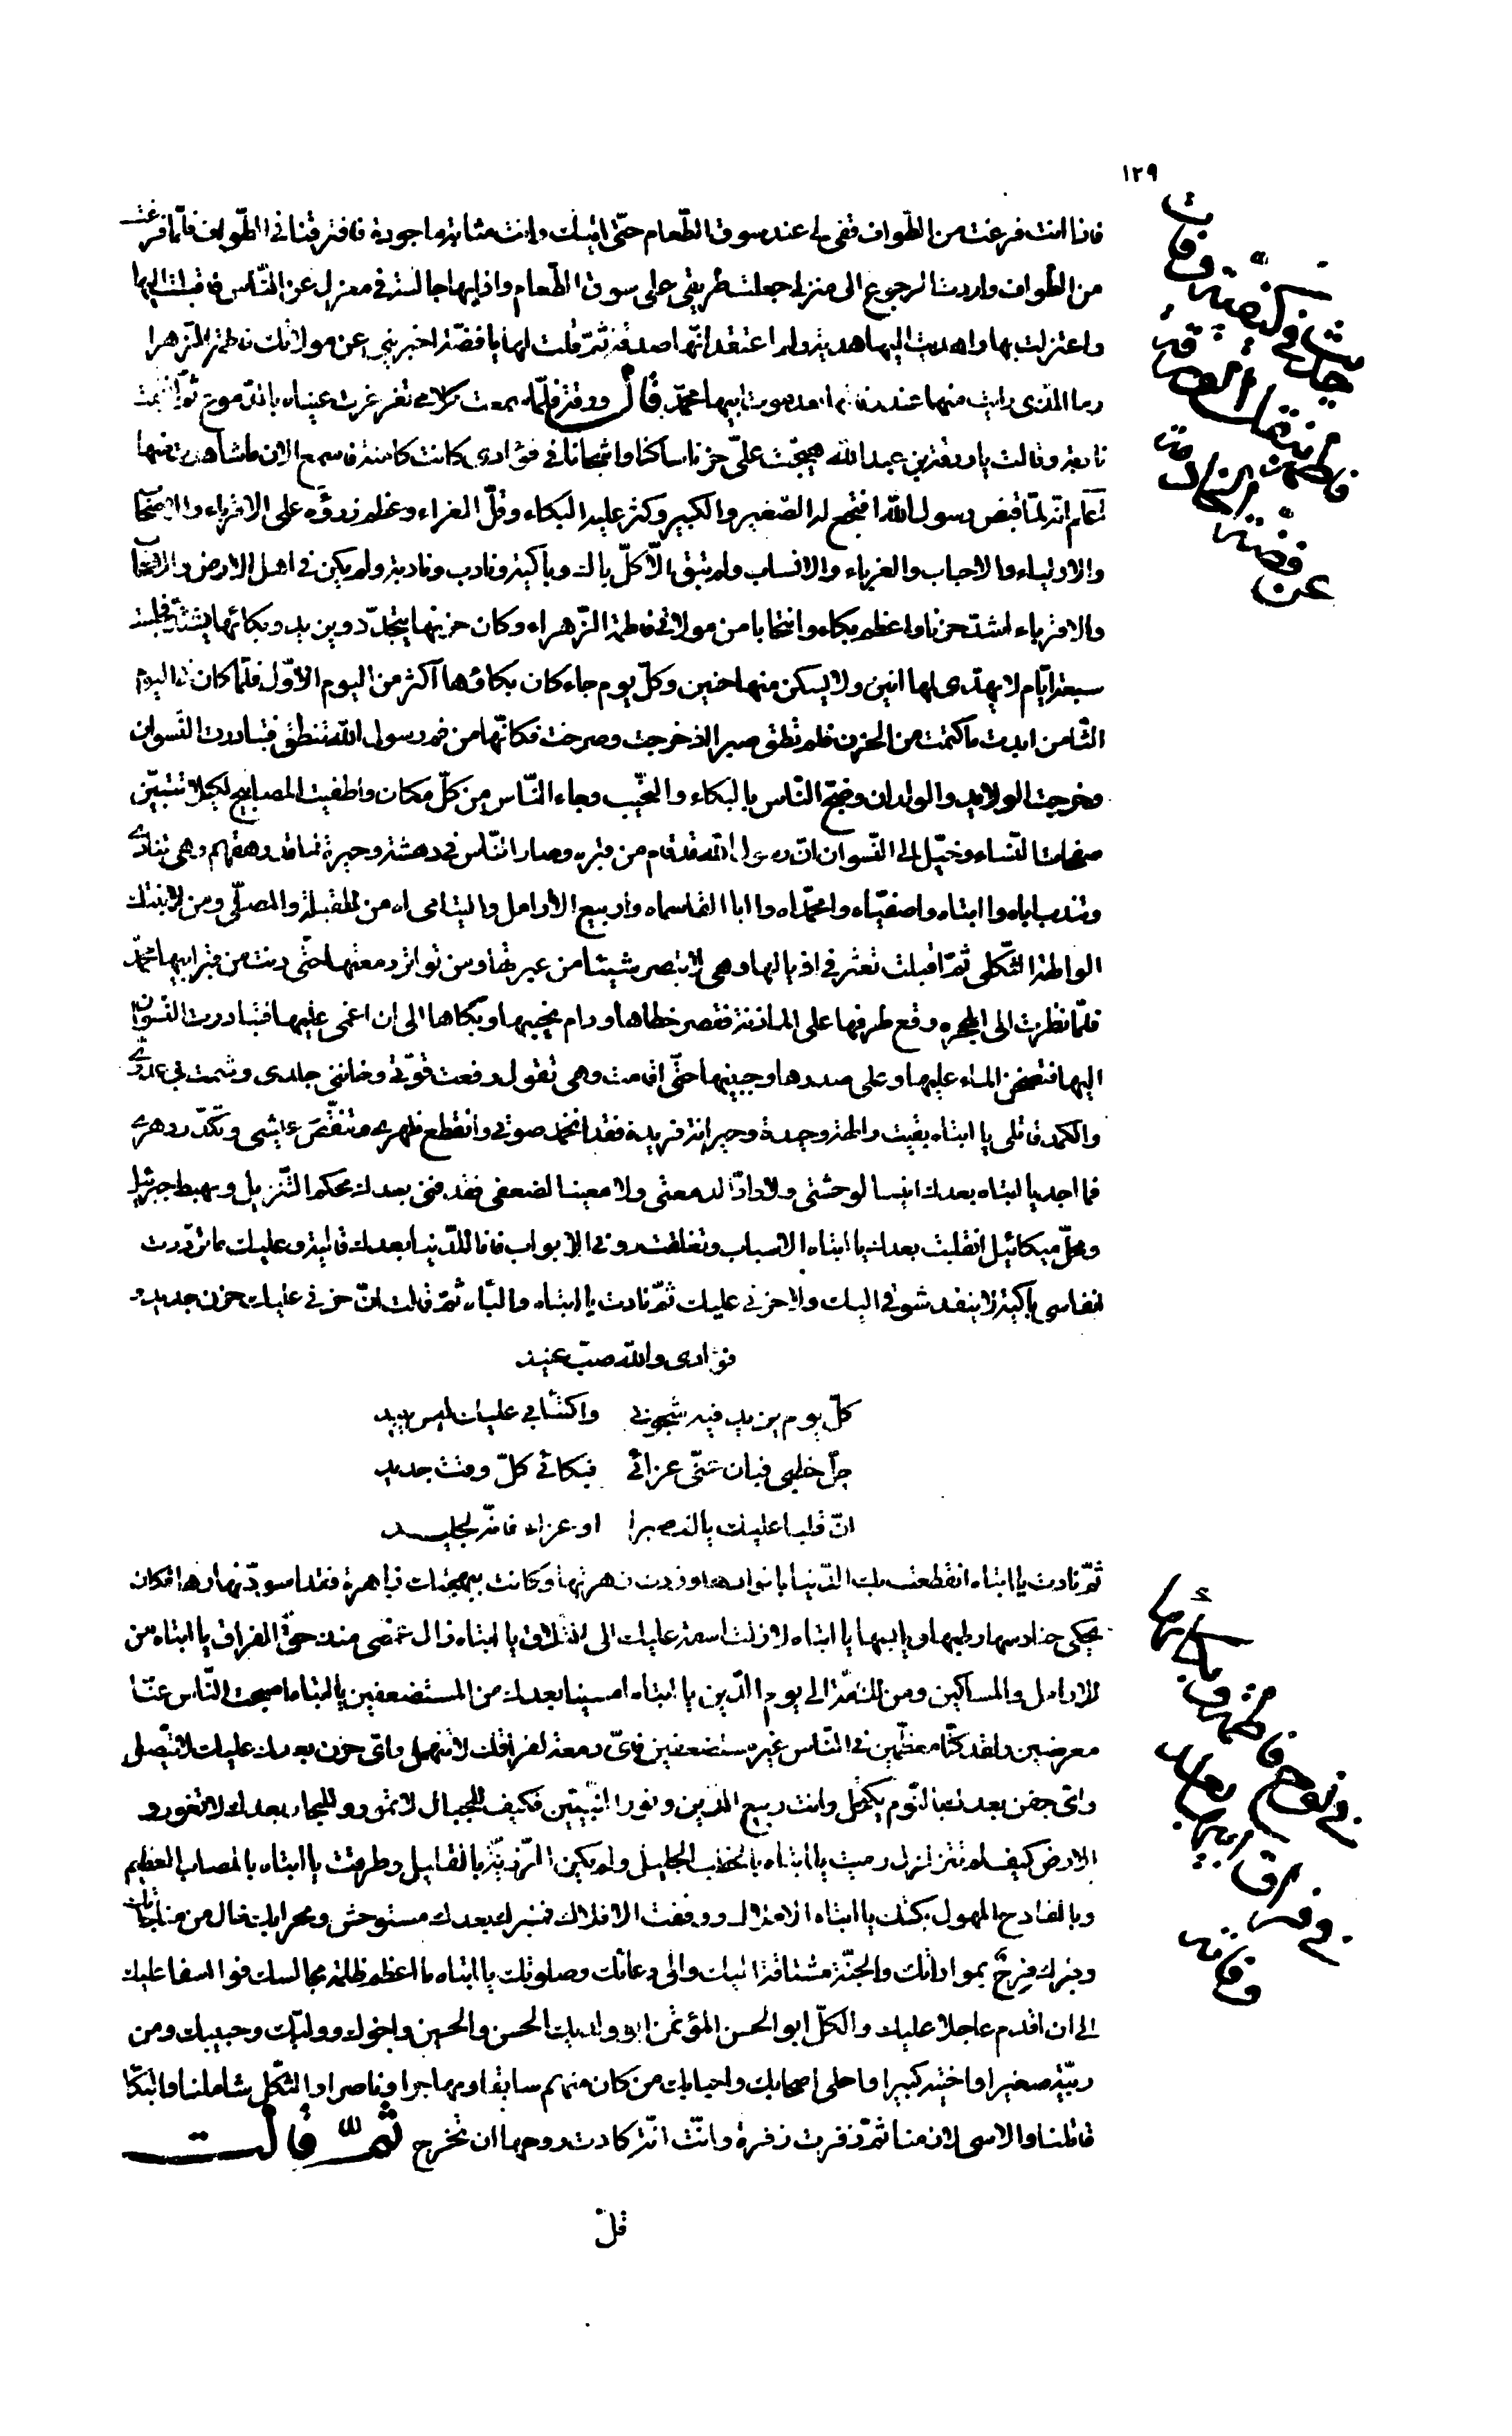 ١٢٩
فاذا انت فرغت من الطّواف فقفى لى عند سوق الطّعام حتّى اتيك وانت مثابة ماجورة فافترقنا فى الطّواف فلمّا فرغت
من الطّواف واردت الرجوع الى منزلى جعلت طريقى على سوق الطّعام واذا بها جالسة فى معزل عن النّاس فاقبلت اليها
واعتزلت بها واهديت اليها هدية ولم اعتقد انّها صدقة ثمّ قلت لها يا فضّة اخبرينى عن مولاتك فاطمة الزّهرا
وما الّذى رايت منها عند وفاتها بعد موت ابيها محمّد قال ورقة فلمّا سمعت كلامى تغرغرت عيناها بالدّموع ثمّ انتحبت
نادبة وقالت يا ورقة بن عبد الله هيّجت علىّ حزنا ساكنا واشجانا فى فؤادى كانت كامنة فاسمع الان ما شاهدت منها
اعلم انّه لمّا قبض رسول الله افتجع له الصّغير والكبير وكثر عليه البكاء وقلّ العزاء وعظم رزؤه على الاقرباء والاصحاب
والاولياء والاحباب والغرباء والانساب ولم تبق الّا كلّ باك وباكية ونادب ونادبة ولم يكن فى اهل الارض والاصحاب
والاقرباء اشدّ حزنا واعظم بكاء وانتحابا من مولاتى فاطمة الزّهراء وكان حزنها يتجدّد ويزيد وبكائها يشتدّ فجلست
سبعة ايّام لا يهدى لها انين ولا يسكن منها حنين وكلّ يوم جاء كان بكاؤها اكثر من اليوم الاوّل فلمّا كان فى اليوم
الثّامن ابدت ما كتمت من الحزن فلم تطق صبرا اذ خرجت وصرخت فكانّها من فم رسول الله تنطق فتبادرت النّسوان
وخرجت الولايد والولدان وضجّ النّاس بالبكاء والنّحيب وجاء النّاس من كلّ مكان واطفيت المصابيح لكيلا تتبيّن
صفحات النّساء وخيّل الى النّسوان انّ رسول الله قد قام من قبره وصار النّاس فى دهشة وحيرة لما قد رهقهم وهى تنادى
وتندب اباه وا ابتاه واصفيّاه وامحمّداه وا ابا القاسماه واربيع الارامل واليتامى اه من للقبلة والمصلّى ومن لابنتك
الوالهة الثّكلى ثمّ اقبلت تعثر فى اذيالها وهى لا تبصر شيئا من عبرتها ومن تواتر دمعتها حتّى دنت من قبر ابيها محمّد
فلمّا نظرت الى الحجره وقع طرفها على الماذنة فقصر خطاها ودام نحيبها وبكاها الى ان اغمى عليها فتبادرت النّسوان
اليها فنضحن الماء عليها وعلى صدرها وجبينها حتّى افاقت وهى تقول رفعت قوّتى وخاننى جلدى وشمت بى عدوّى
والكمد قاتلى يا ابتاه بقيت والهة وحيدة وحيرانة فريدة فقد انخمد صوتى وانقطع ظهرى وتنغّص عيشى وتكدّر دهرى
فما اجد يا ابتاه بعدك انيسا لوحشتى ولا رادّا لدمعتى ولا معينا لضعفى فقد فنى بعدك محكم التّنزيل ومهبط جبرئيل
ومحلّ ميكائيل انقلبت بعدك يا ابتاه الاسباب وتغلقت دونى الابواب فانا للدّنيا بعدك قالية وعليك ما تردّدت
انفاسى باكية لا ينفد شوقى اليك ولا حزنى عليك ثمّ نادت يا ابتاه والبّاه ثمّ قالت انّ حزنى عليك حزن جديد و
فؤادى والله صبّ عنيد
كلّ يوم يزيد فيه شجونى واكتئابى عليك ليس يبيد
جلّ خطبى فبان عنّى عزائى فبكائى كلّ وقت جديد
انّ قلبا عليك يالف صبرا او عزاء فانّه لجليد
ثمّ نادت يا ابتاه انقطعت بك الدّنيا بانوارها وزوت زهرتها وكانت ببهجتك زاهرة فقد اسودّ نهارها فكان
يحكى حنادسها رطبها ويابسها يا ابتاه لا زلت اسفة عليك الى التّلاق يا ابتاه زال غمضى منذ حقّ الفراق يا ابتاه من
للارامل والمساكين ومن للامّة الى يوم الدّين يا ابتاه امسينا بعدك من المستضعفين يا ابتاه اصبحت النّاس عنّا
معرضين ولقد كنّا معظّمين فى النّاس غير مستضعفين فاىّ دمعة لفراقك لا تنهمل واىّ حزن بعدك عليك لا يتّصل
واىّ جفن بعدك بالنّوم يكتحل وانت ربيع الدّين ونور النّبيّين فكيف للجبال لا تمور وللبحار بعدك لا تغور و
الارض كيف لم تتزلزل رميت يا ابتاه بالخطب الجليل ولم يكن الرّزيّة بالقليل وطرقت يا ابتاه بالمصاب العظيم
وبالفادح المهول بكتك يا ابتاه الاملاك ووقفت الافلاك فمنبرك بعدك مستوحش ومحرابك خال من مناجاتك
وقبرك فرح بمواراتك والجنّة مشتاقة اليك والى دعائك وصلوتك يا ابتاه ما اعظم ظلمة مجالسك فوا اسفا عليك
الى ان اقدم عاجلا عليك واثكل ابو الحسن المؤتمن ابو ولديك الحسن والحسين واخوك ووليّك وحبيبك ومن
ربّيته صغيرا واخيته كبيرا واحلى اصحابك واحبابك من كان منهم سابقا ومهاجرا وناصرا والثّكل شاملنا والبكا
قاتلنا والاسى لازمنا ثمّ زفرت زفرة وانّت انّة كادت روحها ان تخرج ثمّ قالت
قلّ
حديث فى كيفيّة وفات
وانتقال الصديقة
فاطمة
عن فضّة
فى نوحة فاطمة وبكائها
فى فراق ابيها بعد
وفاته